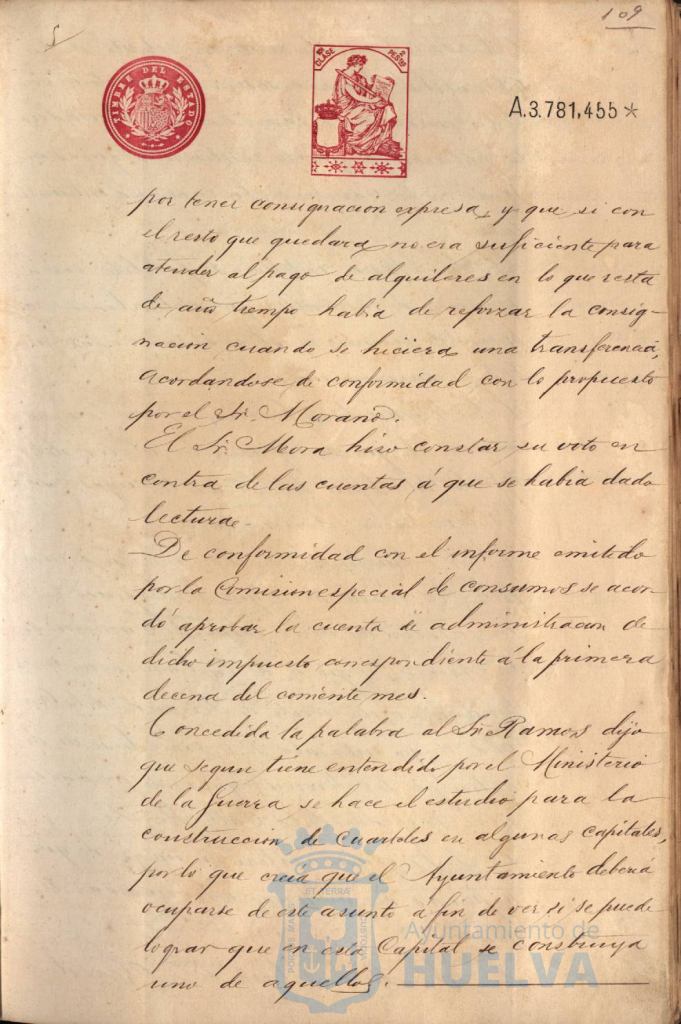 109
TIMBRE DEL ESTADO
CLASE
2 PESETAS
A.3.781,455*
por tener consignación expresa, y que si con
el resto que quedara no era suficiente para
atender al pago de alquileres en lo que resta
de año tiempo habia de reforzar la consig-
nación cuando se hiciera una transferencia,
acordandose de conformidad con lo propuesto
por el Sr. Morano.
El Sr. Mora hiso constar su voto en
contra de las cuentas á que se habia dado
lectura.
De conformidad con el informe emitido
por la Comision especial de consumos se acor-
dó aprobar la cuenta de administracion de
dicho impuesto correspondiente á la primera
decena del corriente mes.
Concedida la palabra al Sr. Ramos dijo
que segun tiene entendido por el Ministerio
de la Guerra se hace el estudio para la
construccion de Cuarteles en algunas capitales,
por lo que creia que el Ayuntamiento deberá
ocuparse de este asunto á fin de ver si se puede
lograr que en esta Capital se construya
uno de aquellos.
Ayuntamiento de
HUELVA